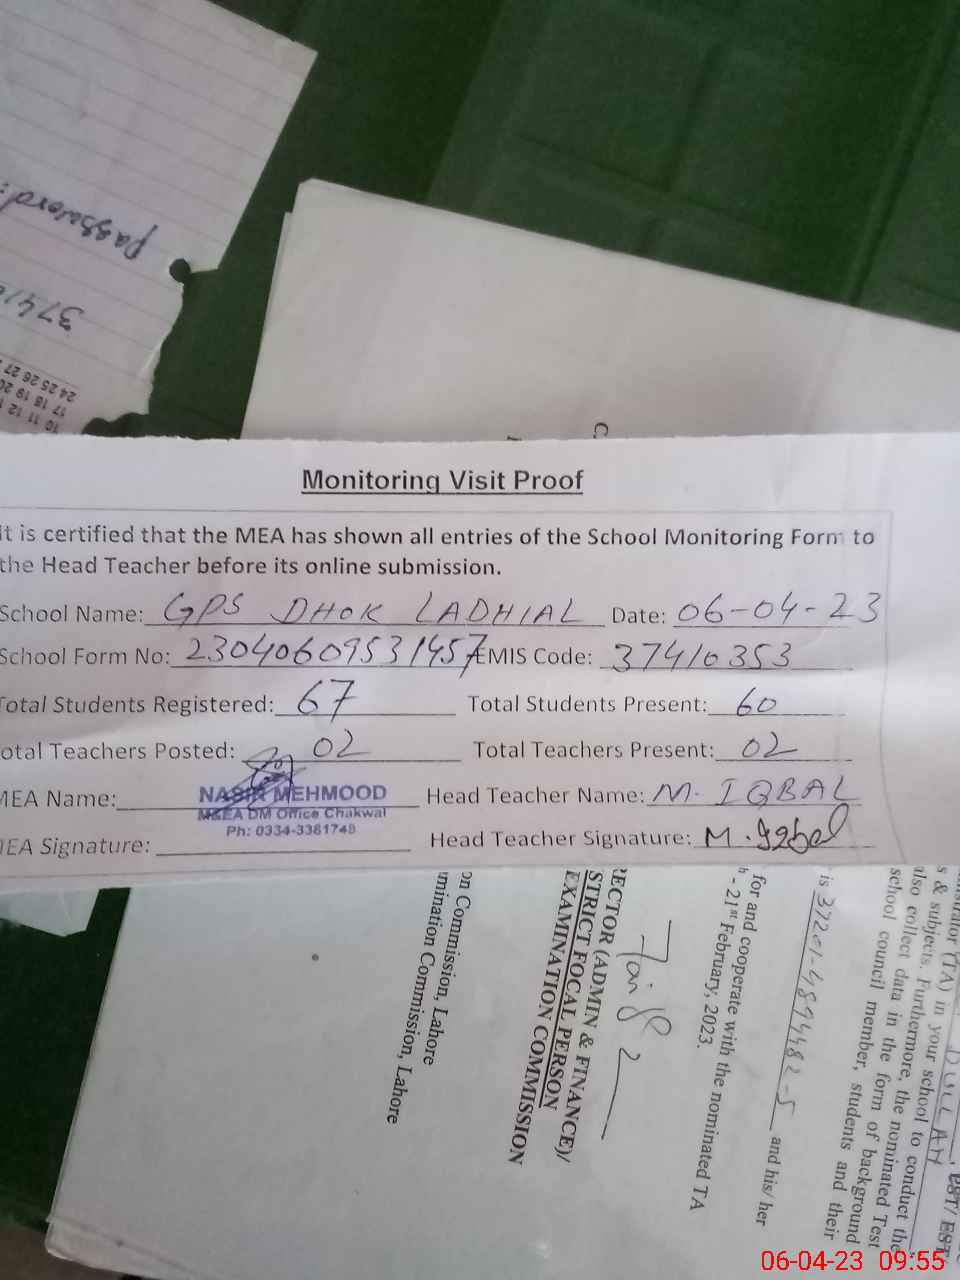 password:
3741
24 25 26 27
17 18 19 20
10 11 12
Monitoring Visit Proof
It is certified that the MEA has shown all entries of the School Monitoring Form to
the Head Teacher before its online submission.
School Name: GPS DHOK LADHIAL Date: 06-04-23
School Form No: 23040609531457 EMIS Code: 37410353
Total Students Registered: 67 Total Students Present: 60
Total Teachers Posted: 02 Total Teachers Present: 02
MEA Name: NASIR MEHMOOD Head Teacher Name: M. IQBAL
M&EA DM Office Chakwal
Ph: 0334-3361748
MEA Signature: Head Teacher Signature: M. Iqbal
(TA) in your school to conduct the
s & subjects. Furthermore, the nominated Test
also collect data in the form of background
school council member, students and their
is 37201-4894482-5 and his/her
for and cooperate with the nominated TA
- 21st February, 2023.
RECTOR (ADMIN & FINANCE)/
STRICT FOCAL PERSON
EXAMINATION COMMISSION
on Commission, Lahore
mination Commission, Lahore
06-04-23 09:55